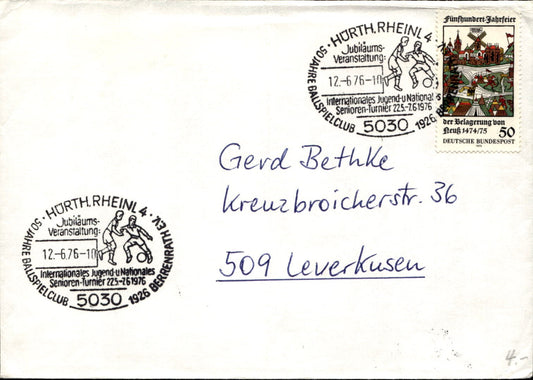 HÜRTH, RHEINL 4 ·
Jubiläums-
Veranstaltung:
12.-6.76-10
Internationales Jugend-u Nationales
Senioren-Turnier 22.5.-7.6.1976
5030
50 JAHRE BALLSPIELCLUB 1926 BERRENRATH
Fünfhundert-Jahrfeier
der Belagerung von
Neuß 1474/75
50
DEUTSCHE BUNDESPOST
Gerd Bethke
Kreuzbroicherstr. 36
509 Leverkusen
· HÜRTH, RHEINL 4 ·
Jubiläums-
Veranstaltung:
12.-6.76-10
Internationales Jugend-u Nationales
Senioren-Turnier 22.5.-7.6.1976
5030
50 JAHRE BALLSPIELCLUB 1926 BERRENRATH E.V.
4.-